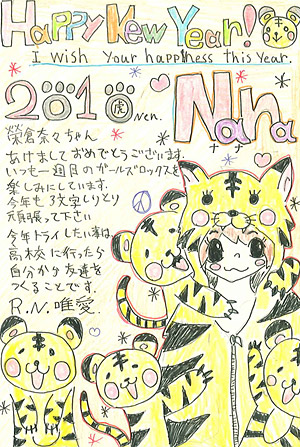 HAPPY NEW YEAR!
I wish your happiness this year.
2010 虎 Nen.
NaNa
ナナ
榮倉奈々ちゃん
あけましておめでとうございます.
いつも一週目のガールズロックスを
楽しみにしています.
今年も3文字しりとり
頑張って下さい
今年トライしたい事は
高校に行ったら
自分から友達を
つくることです.
R.N.唯愛.